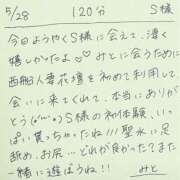 5/28 120分 S様
今日ようやくS様に会えて、凄く
嬉しかったよ♡♡みとに会うために
西船人妻花壇を初めて利用して
会いに来てくれて、本当にありが
とう(*´`*)S様の初体験、いっ
ぱい貰っちゃったね!!!聖水に足
舐め、お尻…どれが良かった?また
一緒に遊ぼうね!! みと